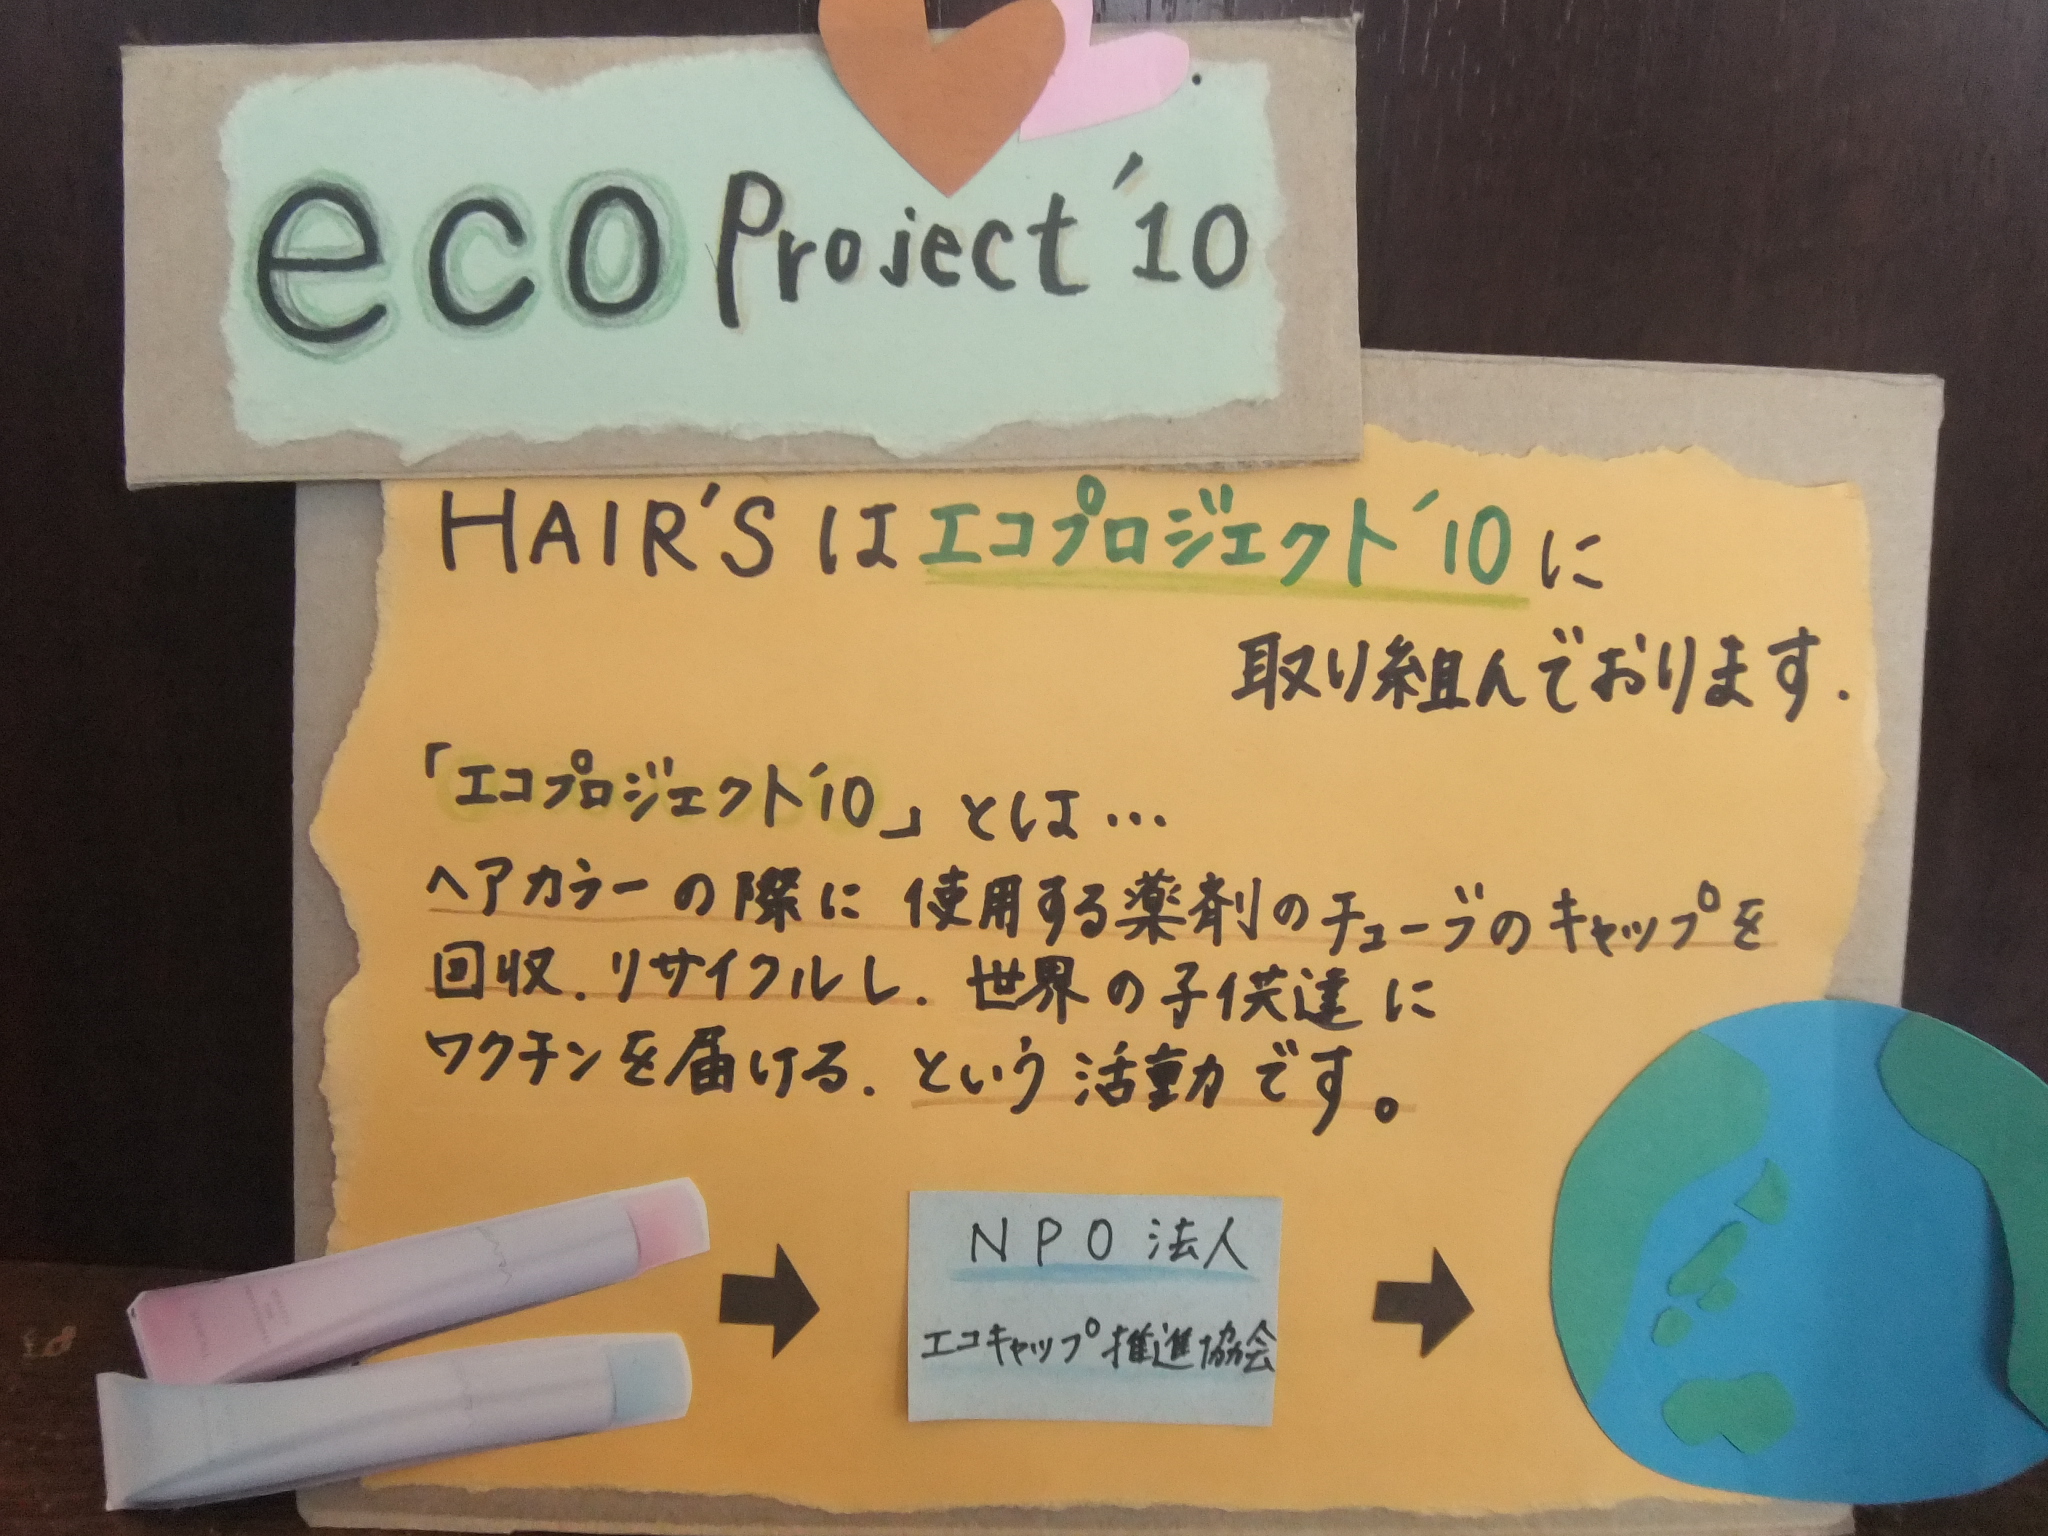 eco Project '10
HAIR'S は エコプロジェクト'10 に
取り組んでおります.
「エコプロジェクト'10」とは…
ヘアカラーの際に 使用する薬剤のチューブのキャップを
回収.リサイクルし. 世界の子供達に
ワクチンを届ける. という活動です。
NPO 法人
エコキャップ推進協会